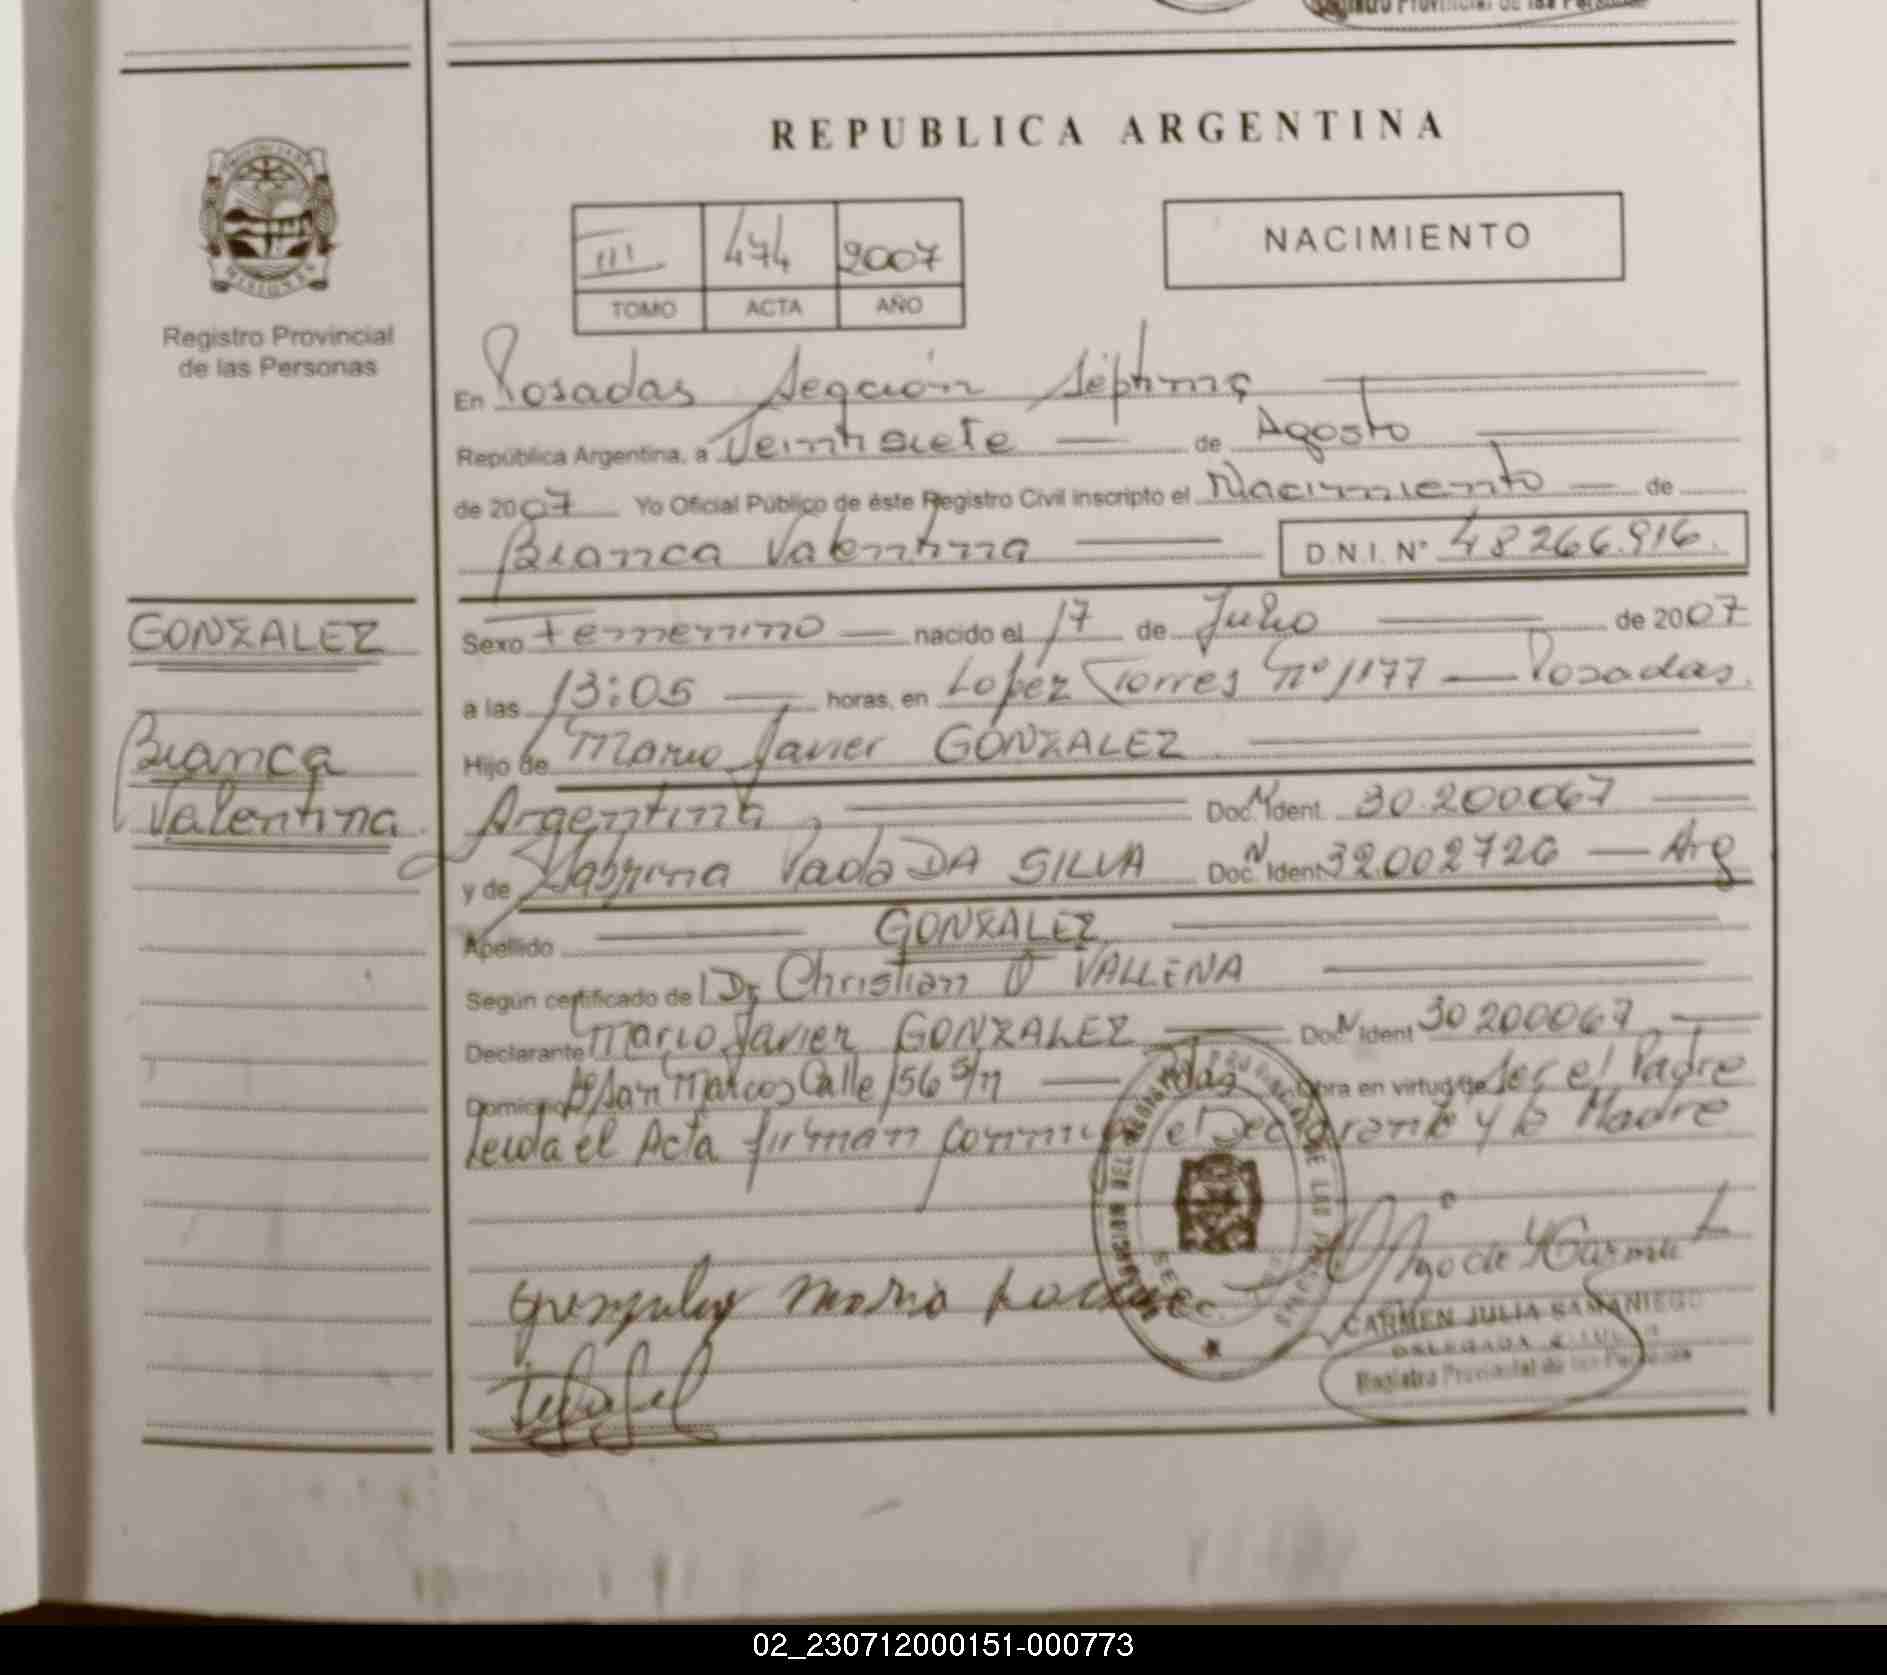 REPUBLICA ARGENTINA
III 474 2007
TOMO ACTA AÑO
NACIMIENTO
Registro Provincial
de las Personas
En Posadas Sección Séptima
República Argentina, a Veintisiete de Agosto
de 2007 Yo Oficial Público de éste Registro Civil inscripto el Nacimiento de
Bianca Valentina D.N.I. Nº 48266.916.
GONZALEZ
Bianca
Valentina
Sexo Femenino nacido el 17 de Julio de 2007
a las 13:05 horas, en Lopez Torres Nº 1177 Posadas.
Hijo de Mario Javier GONZALEZ
Argentina, Doc. N Ident. 30.200.067
y de Paola DA SILVA Doc. N Ident. 32.002726 Arg
Apellido GONZALEZ
Según certificado de Dr Christian O VALLENA
Declarante Mario Javier GONZALEZ Doc. N Ident 30200067
Domicilio San Marcos Calle 156 S/n Pdas Obra en virtud de ser el Padre
Leida el Acta firman el Declarante y la Madre
Gonzalez Mario
CARMEN JULIA SAMANIEGO
DELEGADA
Registro Provincial de las Personas
02_230712000151-000773